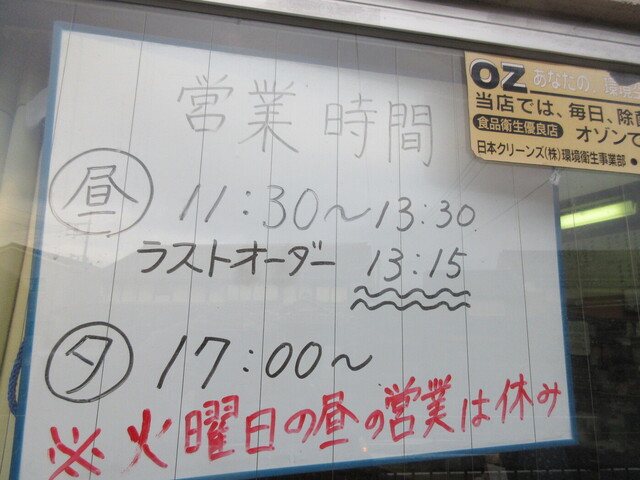 営業時間
昼 11:30～13:30
ラストオーダー 13:15
夕 17:00～
※火曜日の昼の営業は休み
OZ あなたの、環境
当店では、毎日、除菌
食品衛生優良店 オゾンで
日本クリーンズ(株)環境衛生事業部・